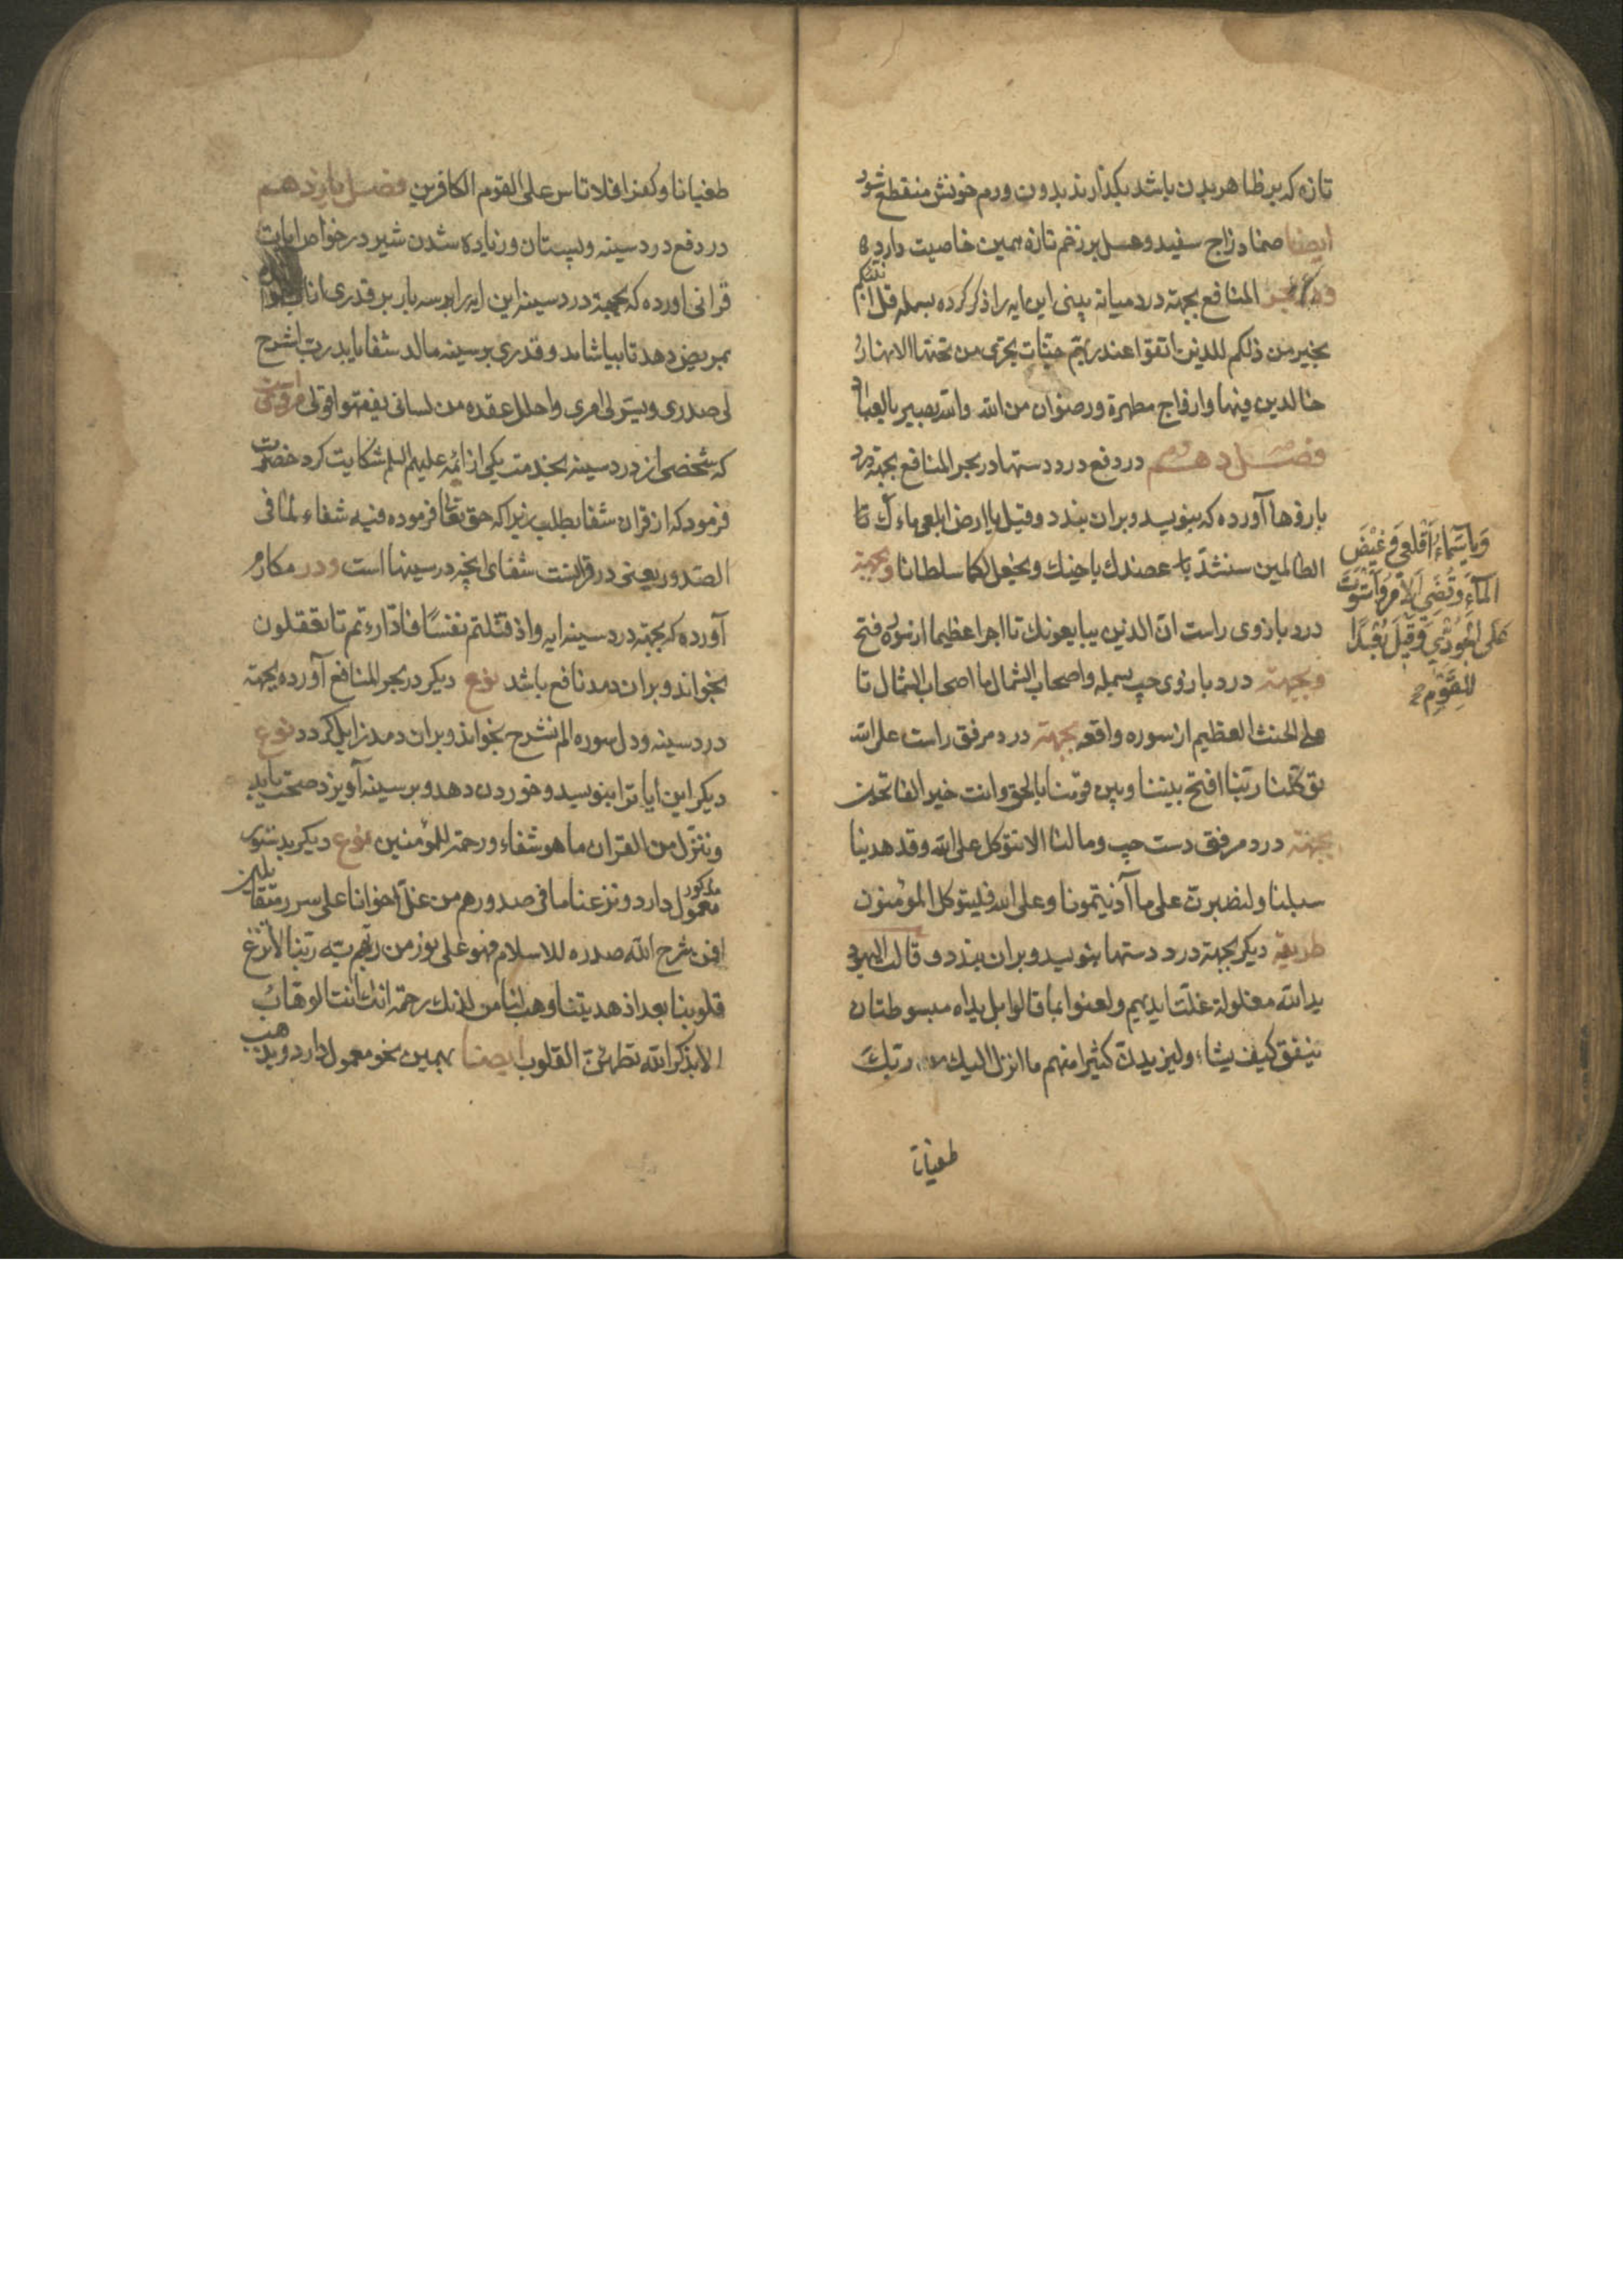 تازه که بر ظاهر بدن باشد بکذارند بدون ورم خونش منقطع شود
ایضا ضماد زاج سفید و عسل بر زخم تازه همین خاصیت دارد
المنافع بجهة درد میانه بینی این ایه را ذکر کرده بسمله قل اؤنبئکم
بخیر من ذلکم للذین اتقوا عند ربهم جنات تجری من تحتها الانهار
خالدین فیها وازواج مطهرة ورضوان من الله والله بصیر بالعباد
فصل دهم در دفع درد دستها در بحر المنافع بجهة درد
بازوها آورده که بنویسد و بران بندد وقیل یا ارض ابلعی ماءک تا
الظالمین سنشد عضدک باخیک ونجعل لکما سلطانا وبجهة
درد بازوی راست ان الذین یبایعونک تا اجرا عظیما از سوره فتح
وبجهة درد بازوی چپ بسمله واصحاب الشمال ما اصحاب الشمال تا
علی الحنث العظیم از سوره واقعه بجهة درد مرفق راست علی الله
توکلنا ربنا افتح بیننا وبین قومنا بالحق وانت خیر الفاتحین
بجهة درد مرفق دست چپ وما لنا الا نتوکل علی الله وقد هدینا
سبلنا ولنصبرن علی ما آذیتمونا وعلی الله فلیتوکل المؤمنون
طریقه دیکر بجهة درد دستها بنویسد و بران بندد وقالت الیهود
ید الله مغلولة غلت ایدیهم ولعنوا بما قالوا بل یداه مبسوطتان
ینفق کیف یشاء ولیزیدن کثیرا منهم ما انزل الیک من ربک
طغیانا
ویا سَمآءُ اَقْلِعی وَغیْضَ
المآءُ وَقُضِیَ الاَمْرُ وَاسْتَوَتْ
عَلَی الجُودِیِّ وَقیلَ بُعْدًا
للقَوْمِ
طغیانا وکفرا فلا تاس علی القوم الکافرین فصل یازدهم
در دفع درد سینه و پستان و زیاده شدن شیر در خواص ایات
قرانی اورده که بجهة درد سینه این ایه را بر سه بار بر قدری
بمریض دهد تا بیاشامد و قدری بر سینه مالد شفا یابد رب اشرح
لی صدری ویسر لی امری واحلل عقدة من لسانی یفقهوا قولی مرویست
که شخصی از درد سینه بخدمت یکی از ائمه علیهم السلم شکایت کرد حضرت
فرمود که از قران شفا بطلب زیرا که حق تعالی فرموده فیه شفاء لما فی
الصدور یعنی در قرانست شفای انچه در سینها است ودر مکارم
آورده که بجهة درد سینه ایه واذ قتلتم نفسًا فادارءتم تا تعقلون
بخواند و بران دمد نافع باشد نوع دیکر در بحر المنافع آورده بجهة
درد سینه و دل سوره الم نشرح بخواند و بران دمد زایل کردد نوع
دیکر این ایات را بنویسد و خوردن دهد و بر سینه آویزد صحت یابد
وننزل من القران ما هو شفاء ورحمة للمؤمنین نوع دیکر بدستور
مذکور معمول دارد ونزعنا ما فی صدورهم من غل اخوانا علی سرر متقابلین
افمن شرح الله صدره للاسلام فهو علی نور من ربه ربنا لا تزغ
قلوبنا بعد اذ هدیتنا وهب لنا من لدنک رحمة انک انت الوهاب
الا بذکر الله تطمئن القلوب ایضا بهمین نحو معمول دارد ویذهب